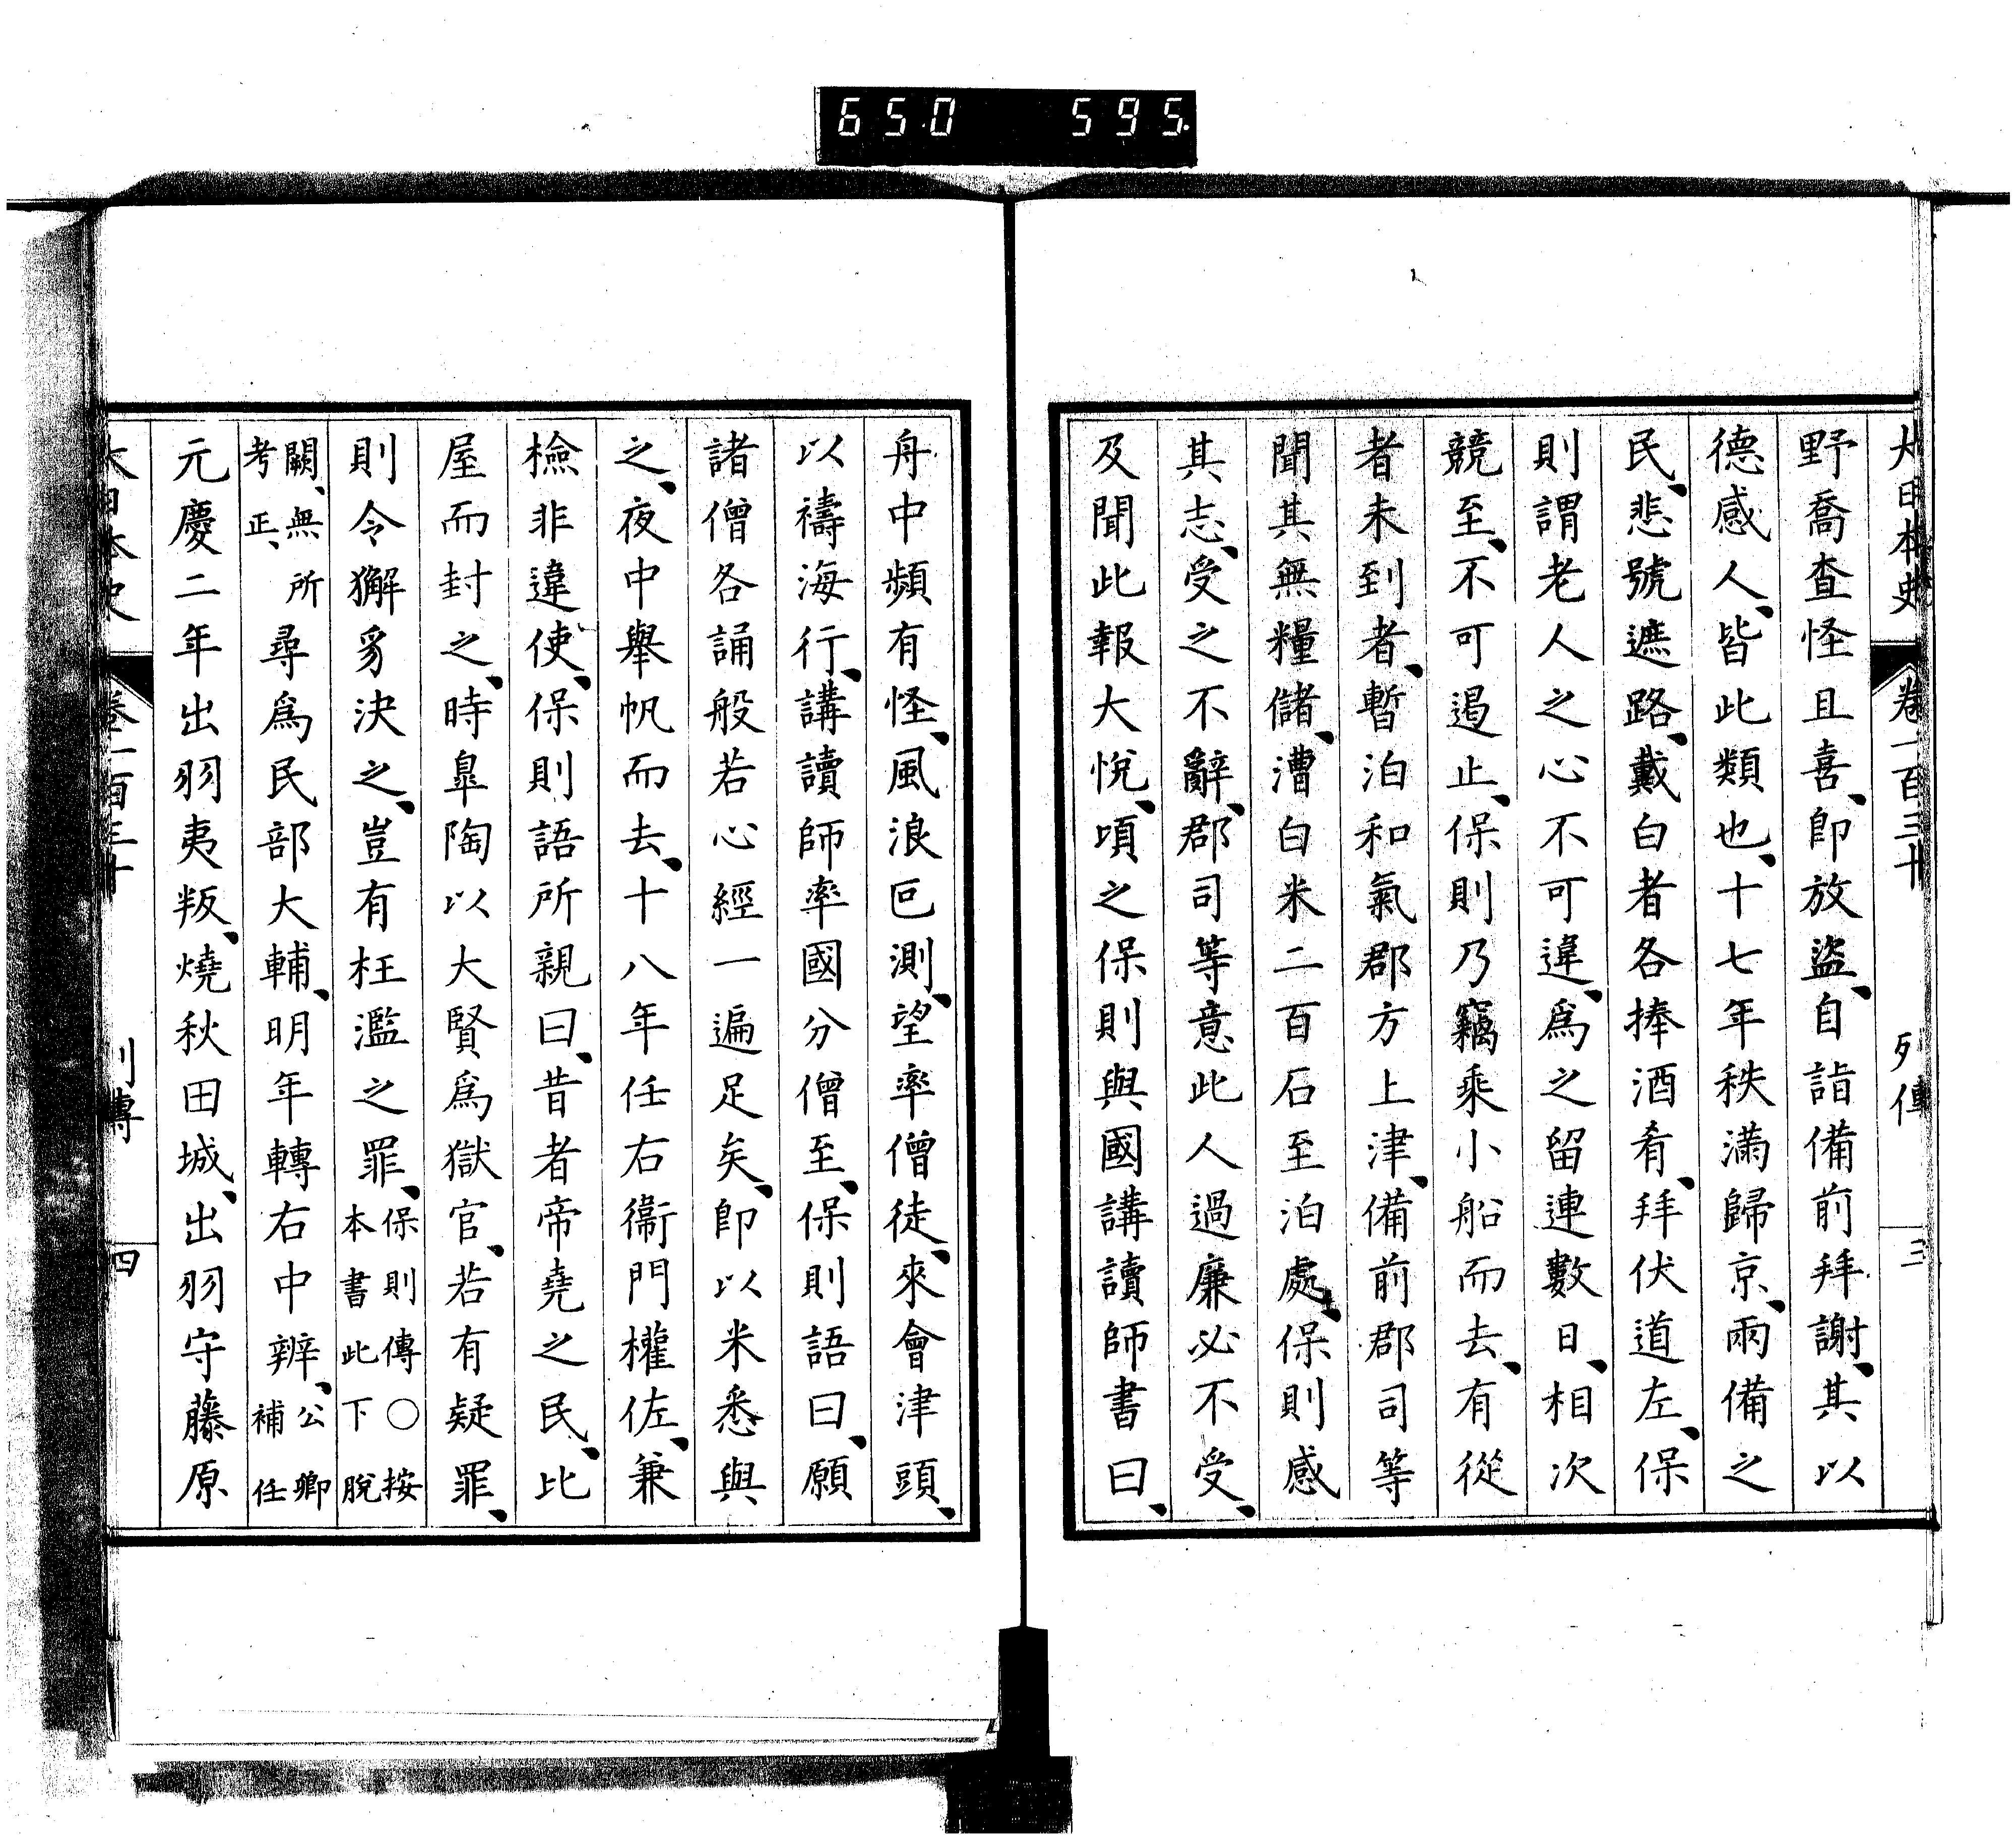 650 595
大日本史 卷一百三十 列傳 三
野喬查怪且喜、卽放盜、自詣備前拜謝、其以
德感人、皆此類也、十七年秩滿歸京、兩備之
民、悲號遮路、戴白者各捧酒肴、拜伏道左、保
則謂老人之心不可違、爲之留連數日、相次
競至、不可遏止、保則乃竊乘小船而去、有從
者未到者、暫泊和氣郡方上津、備前郡司等
聞其無糧儲、漕白米二百石至泊處、保則感
其志、受之不辭、郡司等意此人過廉必不受、
及聞此報大悅、頃之保則與國講讀師書曰、
舟中頻有怪、風浪叵測、望率僧徒、來會津頭、
以禱海行、講讀師率國分僧至、保則語曰、願
諸僧各誦般若心經一遍足矣、卽以米悉與
之、夜中擧帆而去、十八年任右衞門權佐、兼
檢非違使、保則語所親曰、昔者帝堯之民、比
屋而封之、時皐陶以大賢爲獄官、若有疑罪、
則令獬豸決之、豈有枉濫之罪、保則傳○按
本書此下脫
闕、無所
考正、
尋爲民部大輔、明年轉右中辨、公卿
補任
元慶二年出羽夷叛、燒秋田城、出羽守藤原
大日本史 卷一百三十 列傳 四